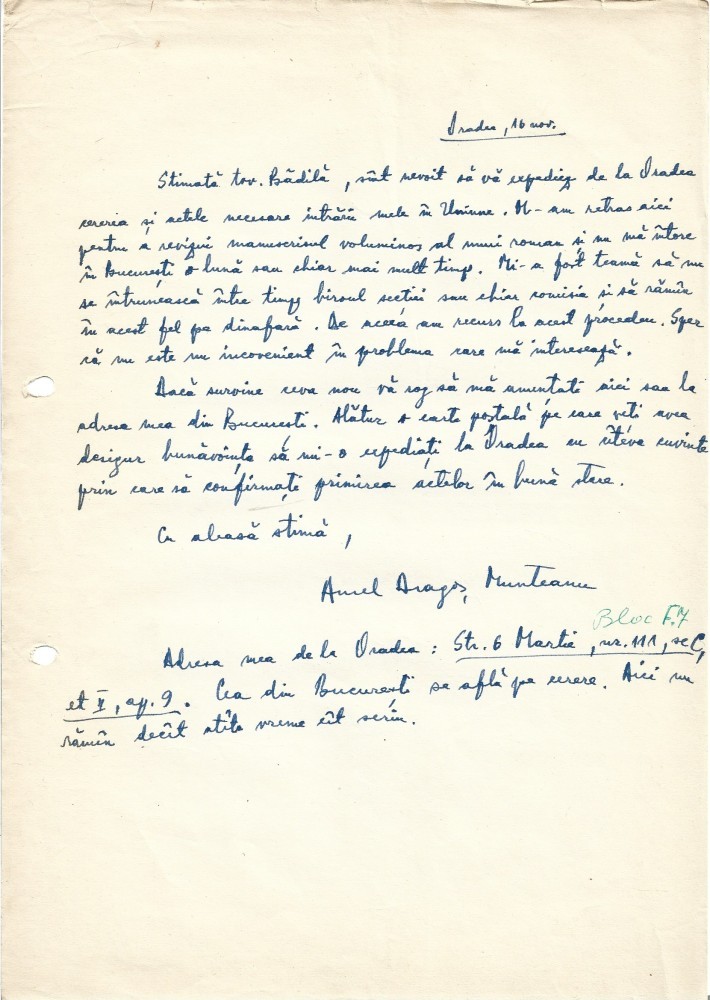 Oradea, 16 nov.
Stimată tov. Bădilă, sînt nevoit să vă expediez de la Oradea
cererea și actele necesare intrării mele în Uniune. M-am retras aici
pentru a revizui manuscrisul voluminos al unui roman și nu mă întorc
în București o lună sau chiar mai mult timp. Mi-a fost teamă să nu
se întrunească între timp biroul secției sau chiar comisia și să rămîn
în acest fel pe dinafară. De aceea am recurs la acest procedeu. Sper
că nu este un incovenient în problema care mă interesează.
Dacă survine ceva nou vă rog să mă anuntati aici sau la
adresa mea din București. Alătur o carte poștală pe care veti avea
desigur bunăvoința să mi-o expediați la Oradea cu cîteva cuvinte
prin care să confirmați primirea actelor în bună stare.
Cu aleasă stimă,
Aurel Dragoș Munteanu
Bloc F.7
Adresa mea de la Oradea: Str. 6 Martie, nr. 111, sc C,
et V, ap. 9. Cea din București se află pe cerere. Aici nu
rămîn decît atîta vreme cît scriu.